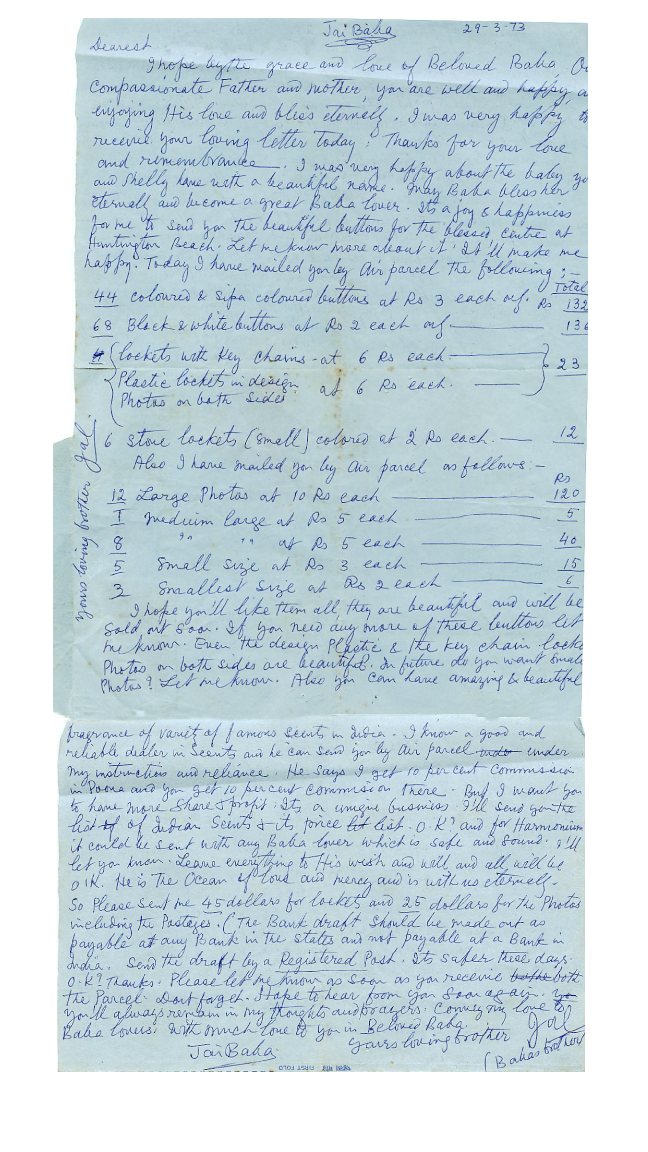 Jai Baba
29-3-73
Dearest
I hope by the grace and love of Beloved Baba Ou
compassionate Father and mother, you are well and happy, a
enjoying His love and bliss eternely. I was very happy to
receive your loving letter today! Thanks for your love
and rumembrance. I was very happy about the baby yo
and Shelly have with a beautiful name. May Baba bless her
eternall and become a great Baba lover. Its a joy & happiness
for me to send you the beautiful buttons for the blessed centre at
Huntington Beach. Let me know more about it! It'll make me
happy. Today I have mailed you by Air parcel the following :-
Total
44 coloured & sipa coloured buttons at Rs 3 each only. Rs 132
68 Black & white buttons at Rs 2 each only 136
Lockets with Key chains - at 6 Rs each 23
Plastic lockets in design at 6 Rs each.
Photos on both sides
6 Stone lockets (small) colored at 2 Rs each. 12
Also I have mailed you by air parcel as follows :-
Rs
12 Large Photos at 10 Rs each 120
1 medium large at Rs 5 each 5
8 " " at Rs 5 each 40
5 Small size at Rs 3 each 15
3 Smallest size at Rs 2 each 6
I hope you'll like them all they are beautiful and will be
sold out soon. If you need any more of these buttons let
me know. Even the design Plastic & the key chain locke
Photos on both sides are beautiful. In future do you want small
Photos? Let me know. Also you can have amazing & beautiful
yours loving brother Jal.
fragrance of variety of famous scents in India. I know a good and
reliable dealer in scents and he can send you by Air parcel under
my instruction and reliance. He says I get 10 per cent Commission
in Poona and you get 10 per cent commission there. But I want you
to have more share & profit. Its a unique business. I'll send you the
list of Indian Scents & its price list. O.K? and for Harmonium
it could be sent with any Baba lover which is safe and sound. I'll
let you know. Leave everything to His wish and will and all will be
O.K. He is the Ocean of love and mercy and is with us eternely.
So Please sent me 45 dollars for lockets and 25 dollars for the Photos
including the Posteges. (The Bank draft should be made out as
payable at any Bank in the States and not payable at a Bank in
India. Send the draft by a Registered Post. Its safer these days.
O.K? Thanks. Please let me know as soon as you receive both
the Parcel. Dont forget. Hope to hear from you soon again.
you'll always remain in my thoughts and prayers. Convey my love to
Baba lovers. With much love to you in Beloved Baba.
Jai Baba
yours loving brother
Jal
(Babas brother
FIRST FOLD